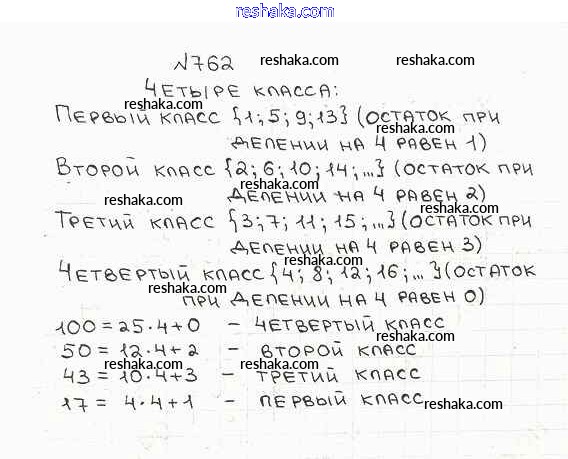 reshaka.com
№762 reshaka.com reshaka.com
Четыре класса:
reshaka.com
Первый класс {1; 5; 9; 13} (остаток при
reshaka.com reshaka.com
делении на 4 равен 1)
Второй класс {2; 6; 10; 14; ...} (остаток при
reshaka.com
делении на 4 равен 2)
reshaka.com reshaka.com
Третий класс {3; 7; 11; 15; ...} (остаток при
делении на 4 равен 3)
reshaka.com
Четвертый класс {4; 8; 12; 16; ...} (остаток
reshaka.com reshaka.com
при делении на 4 равен 0)
100 = 25·4+0 – четвертый класс
50 = 12·4+2 – второй класс
reshaka.com
43 = 10·4+3 – третий класс
17 = 4·4+1 – первый класс reshaka.com